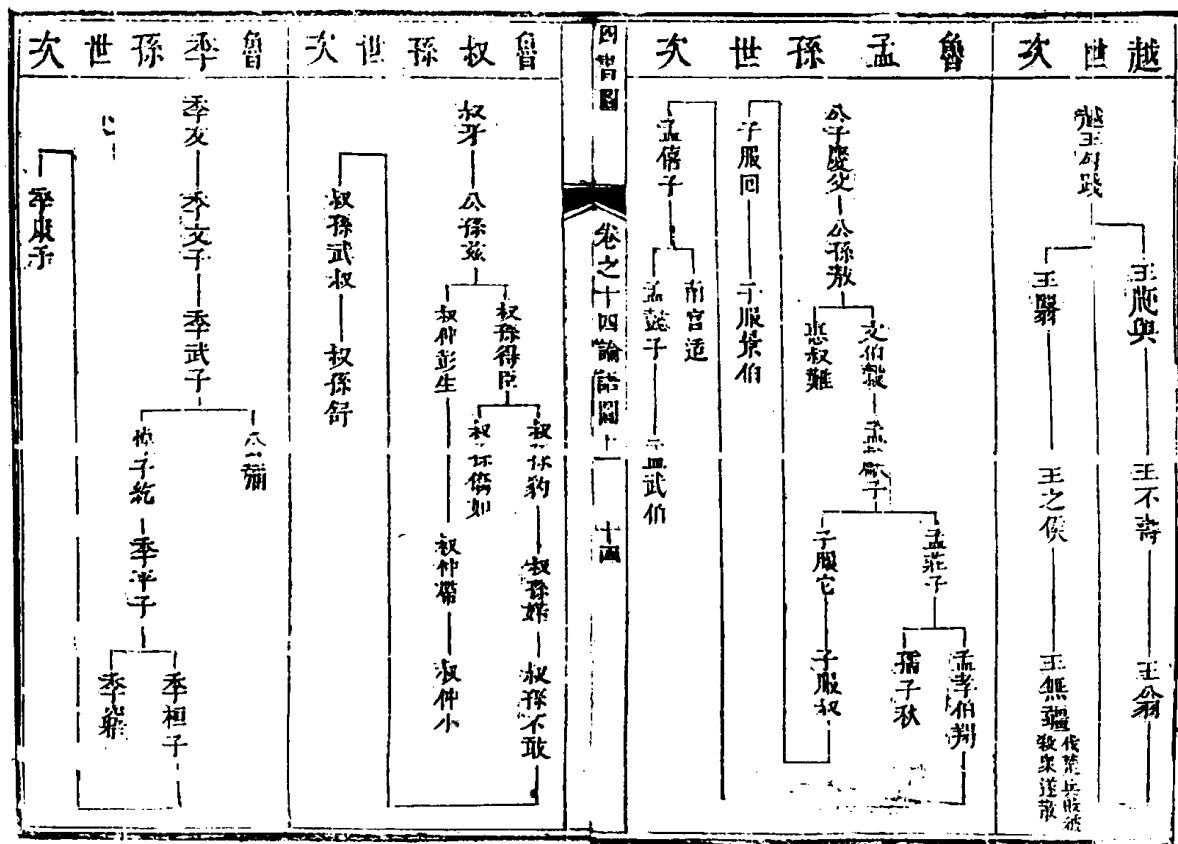 越世次
越王句踐
王鼫與
王不壽
王翁
王翳
王之侯
王無疆
伐楚兵敗被
殺衆遂散
魯孟孫世次
公子慶父
公孫敖
文伯穀
惠叔難
孟獻子
孟莊子
子服它
孟孝伯羯
孺子秋
子服叔
子服回
子服景伯
孟僖子
南宮适
孟懿子
孟武伯
四書圖
卷之十四論語圖十一
十四
魯叔孫世次
叔牙
公孫兹
叔孫得臣
叔仲彭生
叔孫豹
叔孫僑如
叔孫婼
叔孫不敢
叔仲帶
叔仲小
叔孫武叔
叔孫舒
魯季孫世次
季友
季文子
季武子
公彌
悼子紇
季平子
季桓子
季康子